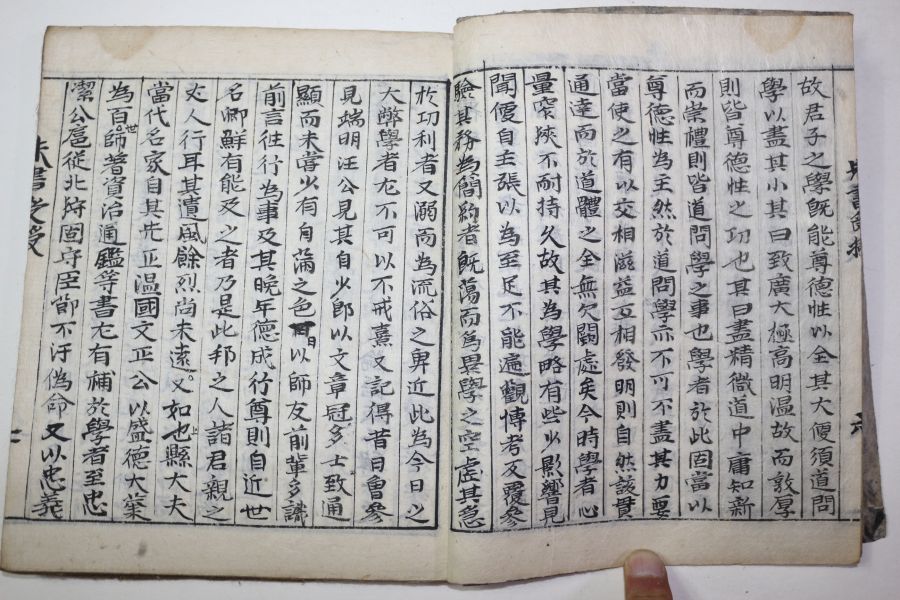 故君子之學既能尊德性以全其大便須道問
學以盡其小其曰致廣大極高明温故而敦厚
則皆尊德性之功也其曰盡精微道中庸知新
而崇禮則皆道問學之事也學者於此固當以
尊德性為主然於道問學亦不可不盡其力要
當使之有以交相滋益互相發明則自然該貫
通達而於道體之全無欠闕處矣今時學者心
量窄狹不耐持久故其為學略有些少影響見
聞便自主張以為至足不能遍觀博考反覆參
驗其務為簡約者既蕩而為異學之空虛其急
於功利者又溺而為流俗之卑近此為今日之
大弊學者尤不可以不戒熹又記得昔日曾參
見端明汪公見其自少即以文章冠多士致通
顯而未嘗少有自滿之色日以師友前輩多識
前言往行為事及其晚年德成行尊則自近世
名卿鮮有能及之者乃是此邦之人諸君親之
丈人行耳其遺風餘烈尚未遠又如也縣大夫
當代名家自其先正温國文正公以盛德大業
為百世師著資治通鑑等書尤有補於學者至忠
潔公扈從北狩固守臣節不汙偽命又以忠義